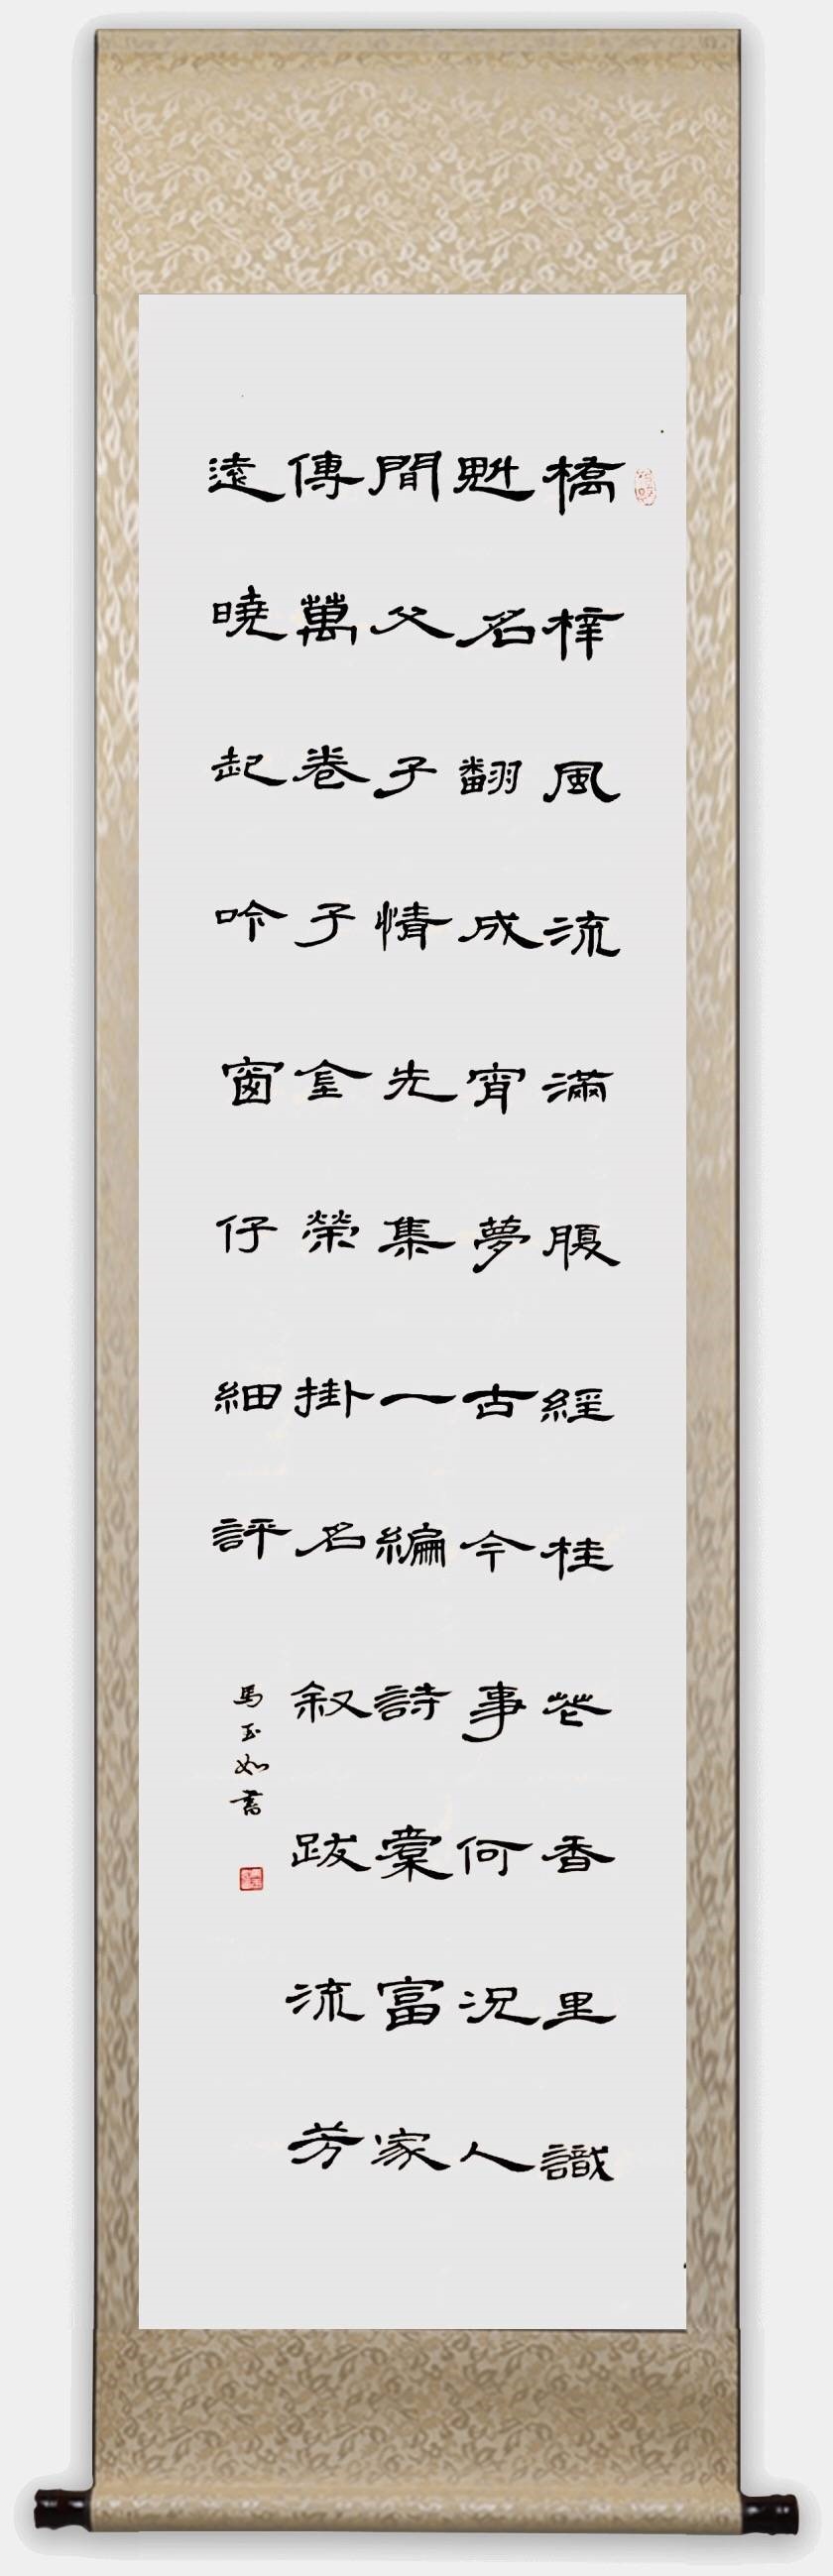 橋梓風流滿腹經桂花香里識
魁名翻成宵夢古今事何況人
間父子情先集一編詩棠富家
傳萬卷子金榮掛名叙跋流芳
遠曉起吟窗仔細評
馬玉如書